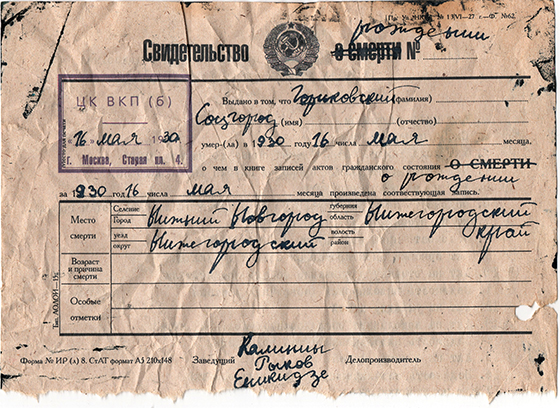 рождении
Свидетельство о смерти №
ЦК ВКП (б)
"16" мая 1930
г. Москва, Старая пл. 4.
Выдано в том, что Горьковский (фамилия)
Соцгород (имя) (отчество)
умер-(ла) в 1930 году 16 числа мая месяца,
о чем в книге записей актов гражданского состояния о смерти
о рождении
за 1930 год 16 числа мая месяца произведена соответствующая запись.
Место смерти
Селение
Город Нижний Новгород
губерния
область Нижегородский край
уезд
округ Нижегородский
волость
район
Возраст и причина смерти
Особые отметки
Форма № ИР (л) 8. СтАТ формат А5 210х148 Заведущий Делопроизводитель
Калинин
Рыков
Енукидзе